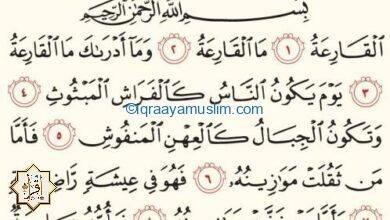 بِسْمِ ٱللَّهِ ٱلرَّحْمَٰنِ ٱلرَّحِيمِ
ٱلْقَارِعَةُ ١ مَا ٱلْقَارِعَةُ ٢ وَمَآ أَدْرَىٰكَ مَا ٱلْقَارِعَةُ
٣ يَوْمَ يَكُونُ ٱلنَّاسُ كَٱلْفَرَاشِ ٱلْمَبْثُوثِ ٤
©Iqraayamuslim.com
وَتَكُونُ ٱلْجِبَالُ كَٱلْعِهْنِ ٱلْمَنفُوشِ ٥ فَأَمَّا
مَن ثَقُلَتْ مَوَٰزِينُهُۥ ٦ فَهُوَ فِى عِيشَةٍ